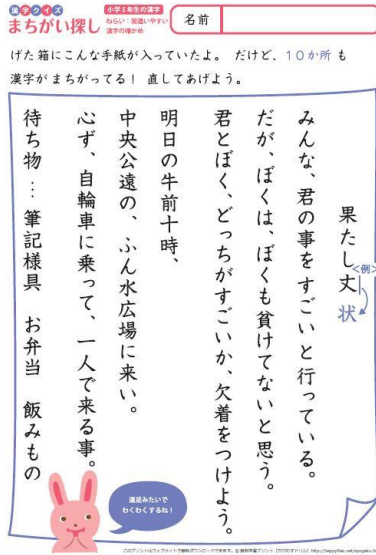 漢字クイズ
まちがい探し
小学5年生の漢字
ねらい：間違いやすい
漢字の確かめ
名前
げた箱にこんな手紙が入っていたよ。 だけど、10か所も
漢字がまちがってる！ 直してあげよう。
果たし丈
<例>
状
みんな、君の事をすごいと行っている。
だが、ぼくは、ぼくも貧けてないと思う。
君とぼく、どっちがすごいか、欠着をつけよう。
明日の牛前十時、
中央公遠の、ふん水広場に来い。
心ず、自輪車に乗って、一人で来る事。
待ち物…筆記様具 お弁当 飯みもの
遠足みたいで
わくわくするね！